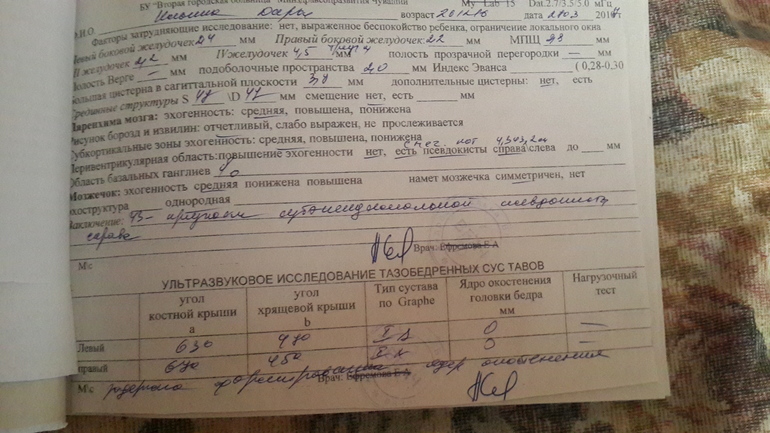 БУ "Вторая городская больница" Минздравсоцразвития Чувашии My Lab 15 Dat.2.7/3.5/5.0 мГц
Ф.И.О возраст дата 2103 201
Факторы затрудняющие исследование: нет, выраженное беспокойство ребенка, ограничение локального окна
Левый боковой желудочек: 24 мм Правый боковой желудочек: 22 мм МПЩ мм
III желудочек 2,2 мм IV желудочек 4,5 мм полость прозрачной перегородки — мм
Полость Верге — мм подоболочные пространства 20 мм Индекс Эванса (0,28-0,30
Большая цистерна в сагиттальной плоскости 38 мм дополнительные цистерны: нет, есть
Срединные структуры S 47 \D 47 мм смещение нет, есть мм
Паренхима мозга: эхогенность: средняя, повышена, понижена
Рисунок борозд и извилин: отчетливый, слабо выражен, не прослеживается
Субкортикальные зоны эхогенность: средняя, повышена, понижена
Перивентрикулярная область: повышение эхогенности нет, есть псевдокисты справа слева до мм
Область базальных ганглиев
Мозжечок: эхогенность средняя понижена повышена намет мозжечка симметричен, нет
эхоструктура однородная
Заключение: УЗ- признаки субэпендимальной псевдокисты
справа
М\с Врач: Ефремова Е А
УЛЬТРАЗВУКОВОЕ ИССЛЕДОВАНИЕ ТАЗОБЕДРЕННЫХ СУС ТАВОВ
угол костной крыши a угол хрящевой крыши b Тип сустава по Graphe Ядро окостенения головки бедра мм Нагрузочный тест
Левый 630 0 —
правый 450 0 —
М\с Врач: Ефремова Е А
задержка формирования ядер окостенения